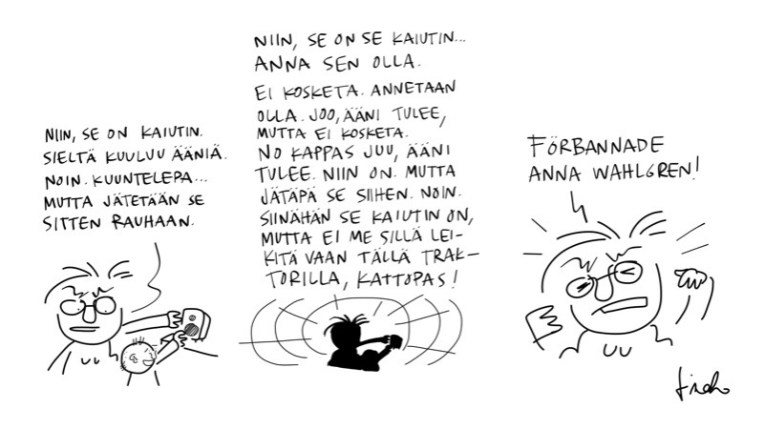 NIIN, SE ON KAIUTIN.
SIELTÄ KUULUU ÄÄNIÄ.
NOIN. KUUNTELEPA...
MUTTA JÄTETÄÄN SE
SITTEN RAUHAAN.
NIIN, SE ON SE KAIUTIN...
ANNA SEN OLLA.
EI KOSKETA. ANNETAAN
OLLA. JOO, ÄÄNI TULEE,
MUTTA EI KOSKETA.
NO KAPPAS JUU, ÄÄNI
TULEE. NIIN ON. MUTTA
JÄTÄPÄ SE SIIHEN. NOIN.
SIINÄHÄN SE KAIUTIN ON,
MUTTA EI ME SILLÄ LEI-
KITÄ VAAN TÄLLÄ TRAK-
TORILLA, KATTOPAS!
FÖRBANNADE
ANNA WAHLGREN!